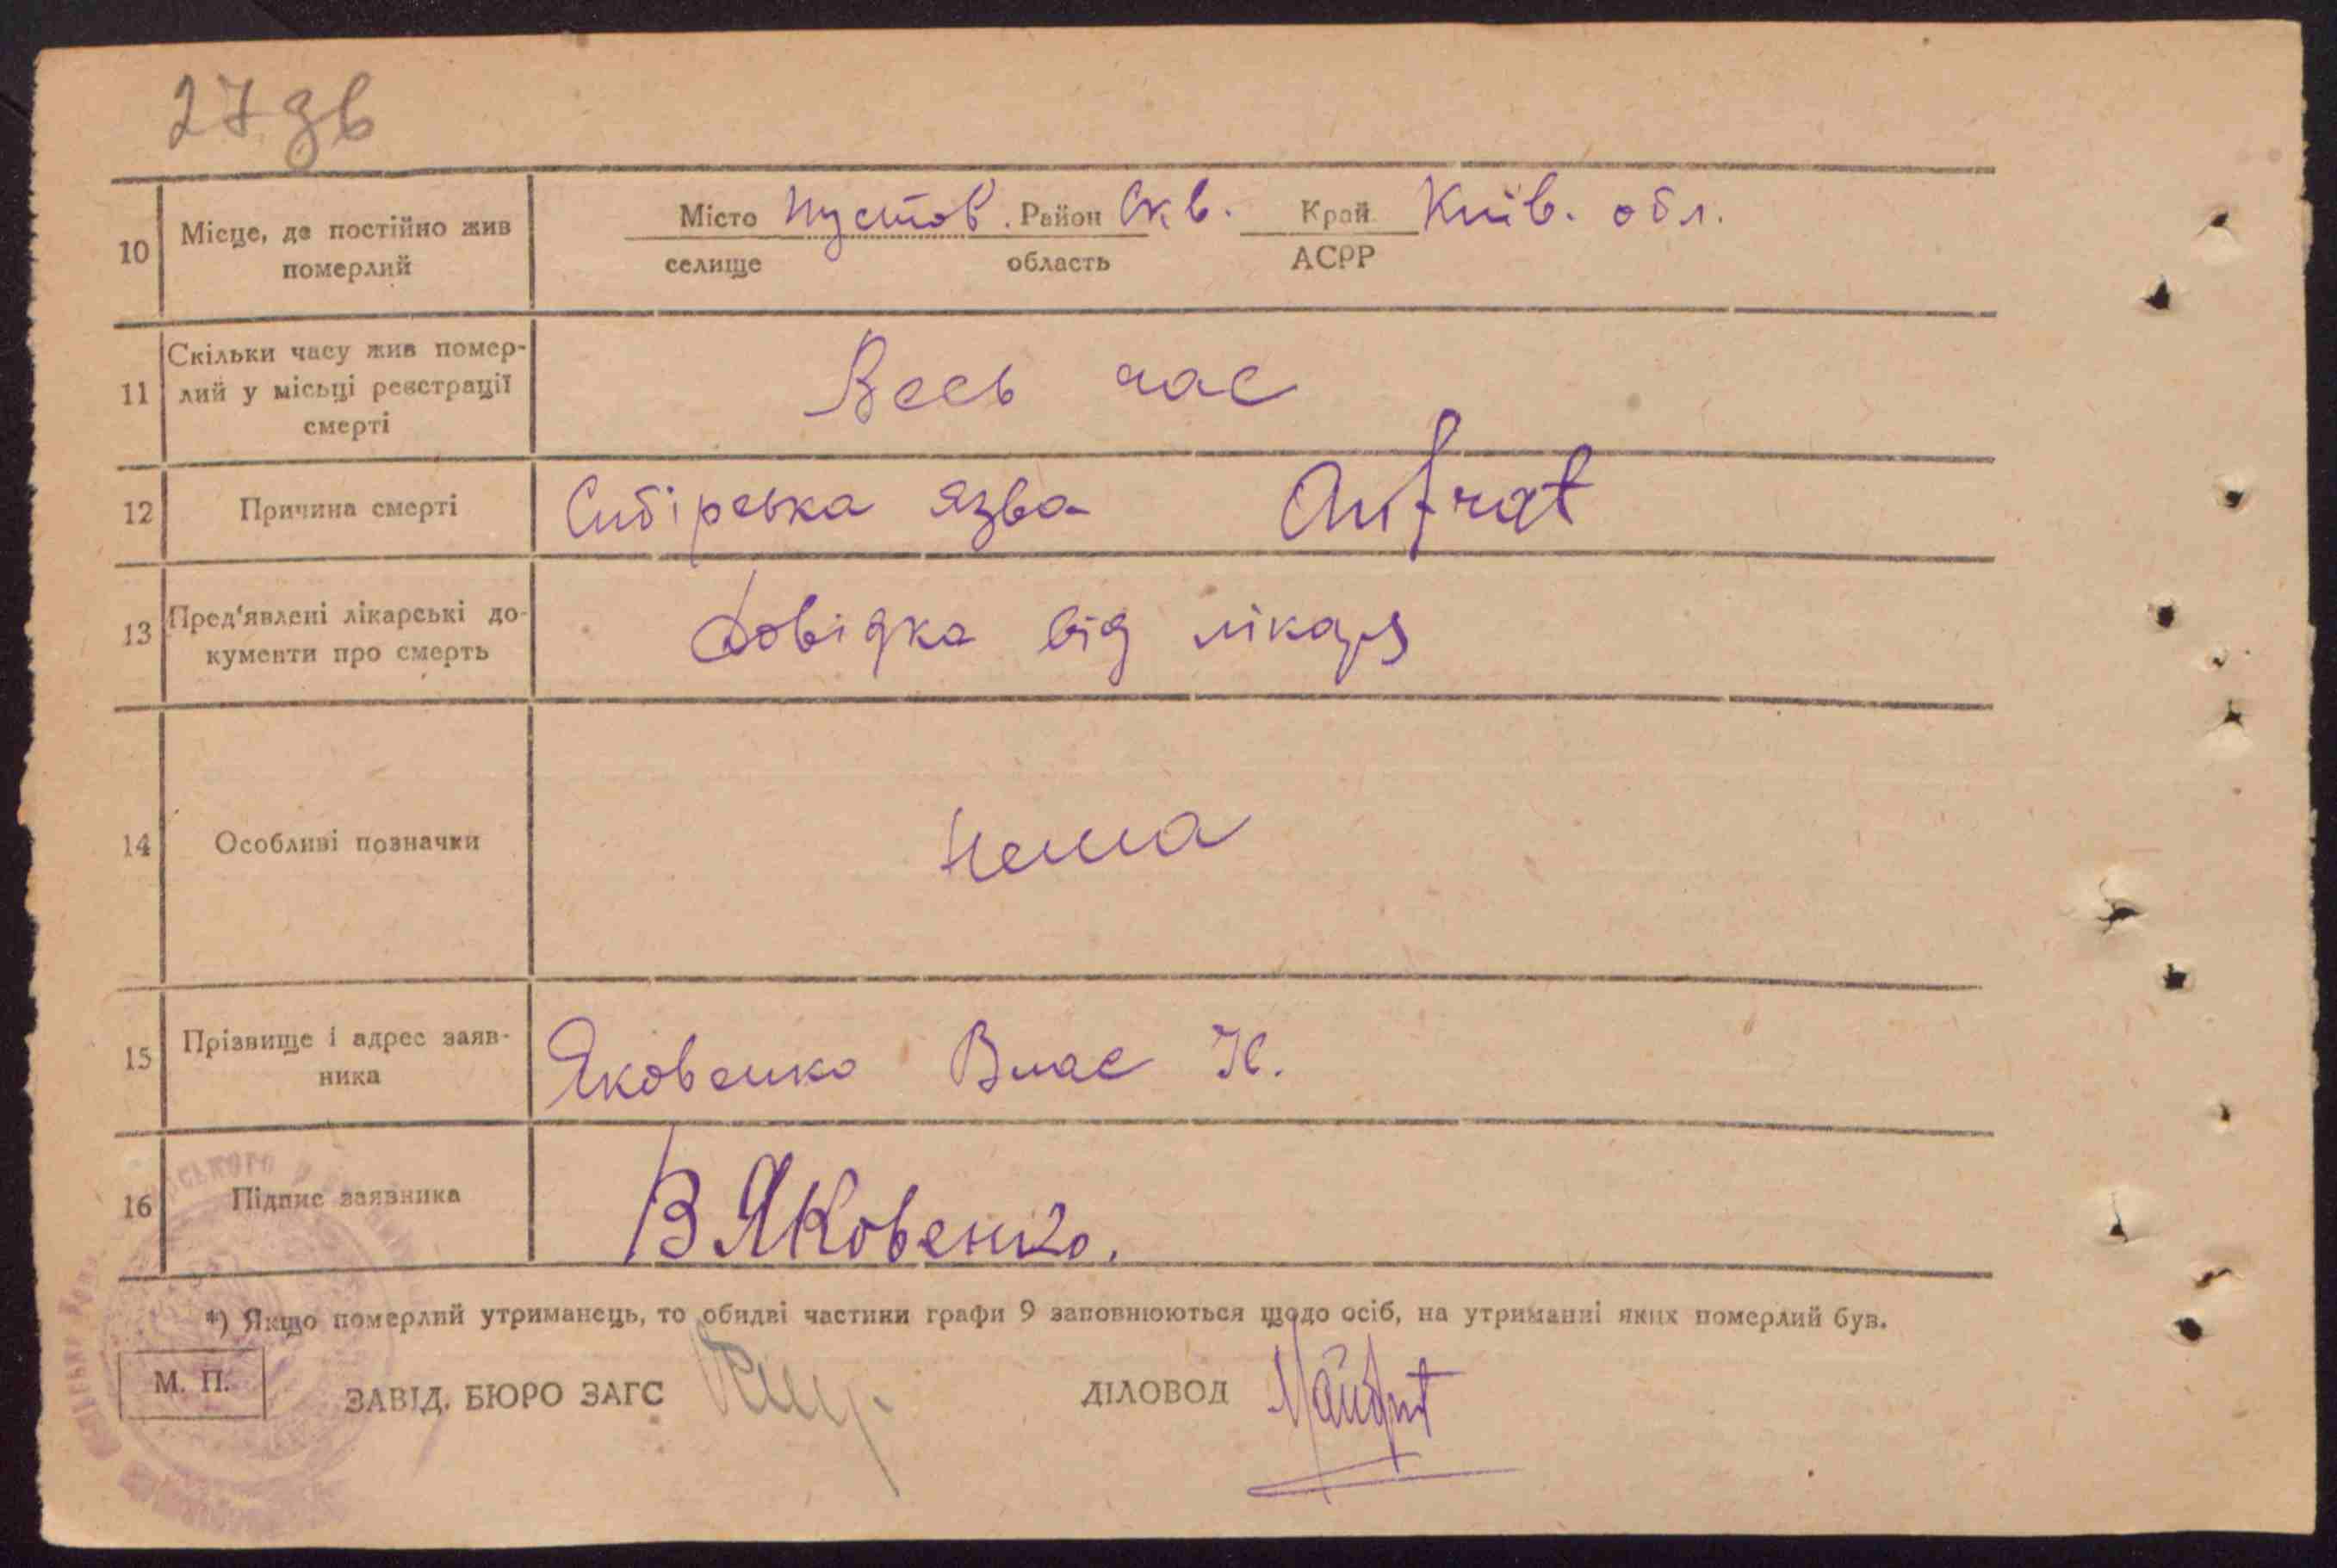 27 зв
10 Місце, де постійно жив померлий
Місто Пустов. Район Скв. Край Київ. обл.
селище область АСРР
11 Скільки часу жив помер-
лий у місьці реєстрації
смерті
Весь час
12 Причина смерті Сибірська язва
13 Пред'явлені лікарські до-
кументи про смерть
Довідка від лікаря
14 Особливі позначки Нема
15 Прізвище і адрес заяв-
ника
Яковенко Влас
16 Підпис заявника В Яковенко.
*) Якщо померлий утриманець, то обидві частини графи 9 заповнюються щодо осіб, на утриманні яких померлий був.
М. П. ЗАВІД. БЮРО ЗАГС ДІЛОВОД